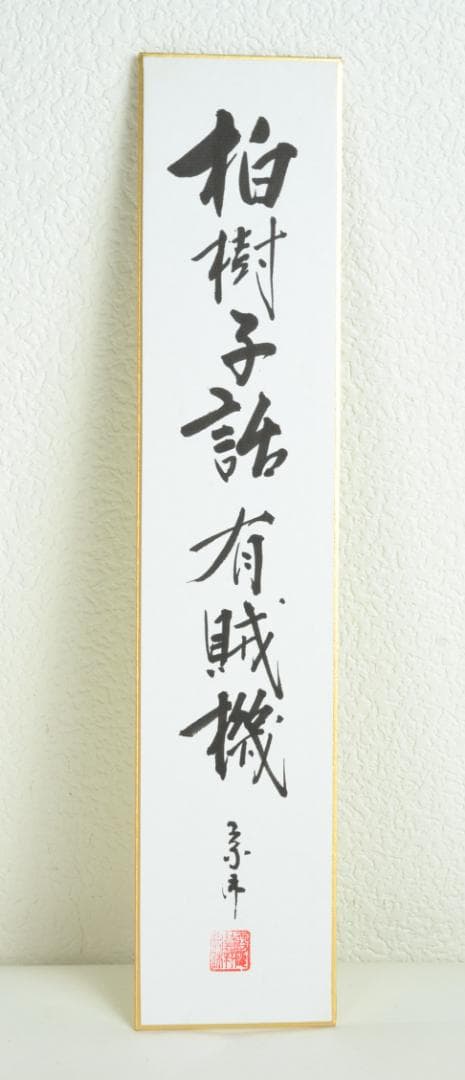 柏樹子話有賊機